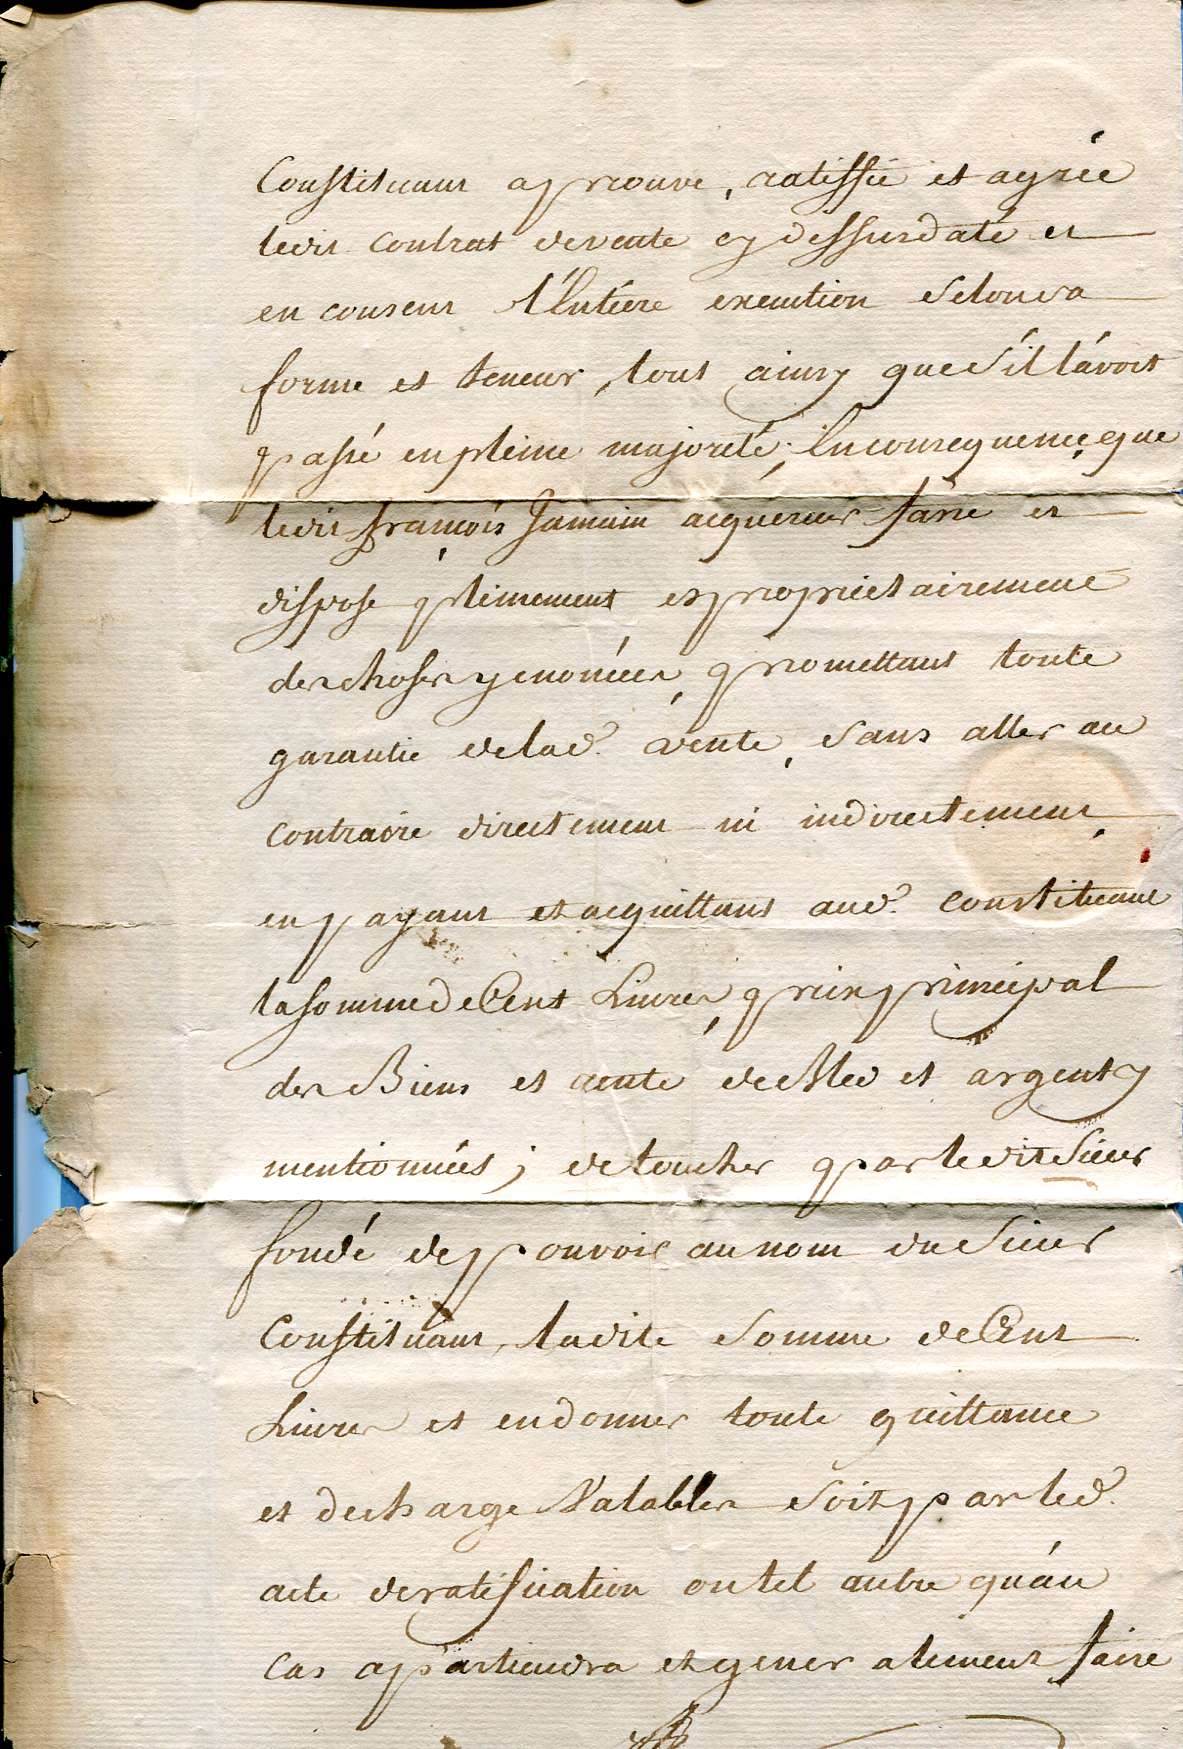 Constituant aprouve, ratiffie et agrée
ledit contrat de vente cy dessus daté et
en consent l'Entiére execution selon sa
forme et teneur, tout ainsy que s'il l'avoit
passé en pleine majorité; En consequence, que
ledit françois Jamain acquereur fasse et
dispose pleinement et proprietairement
des choses y enoncées, promettant toute
garantie de lad. vente, sans aller au
contraire directement ni indirectement,
en payant et acquittant aud. constituant
la somme de Cent Livres, prix principal
des Biens et rente de Bled et argent y
mentionnés; de toucher par ledit Sieur
fondé de pouvoir au nom du Sieur
Constituant, ladite somme de Cent
Livres et en donner toute quittance
et decharge Valables soit par led.
acte de ratification ou tel autre qu'au
cas apartiendra et generalement faire